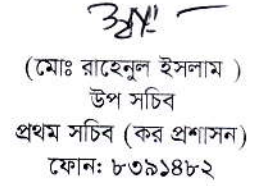 (মোঃ রাহেনুল ইসলাম )
উপ সচিব
প্রথম সচিব (কর প্রশাসন)
ফোন: ৮৩৯১৪৮২